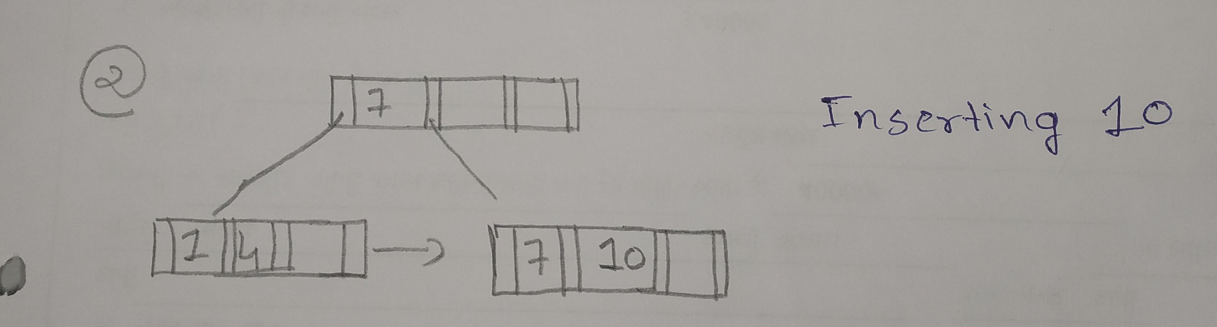 2
7
Inserting 10
1 4
7 10